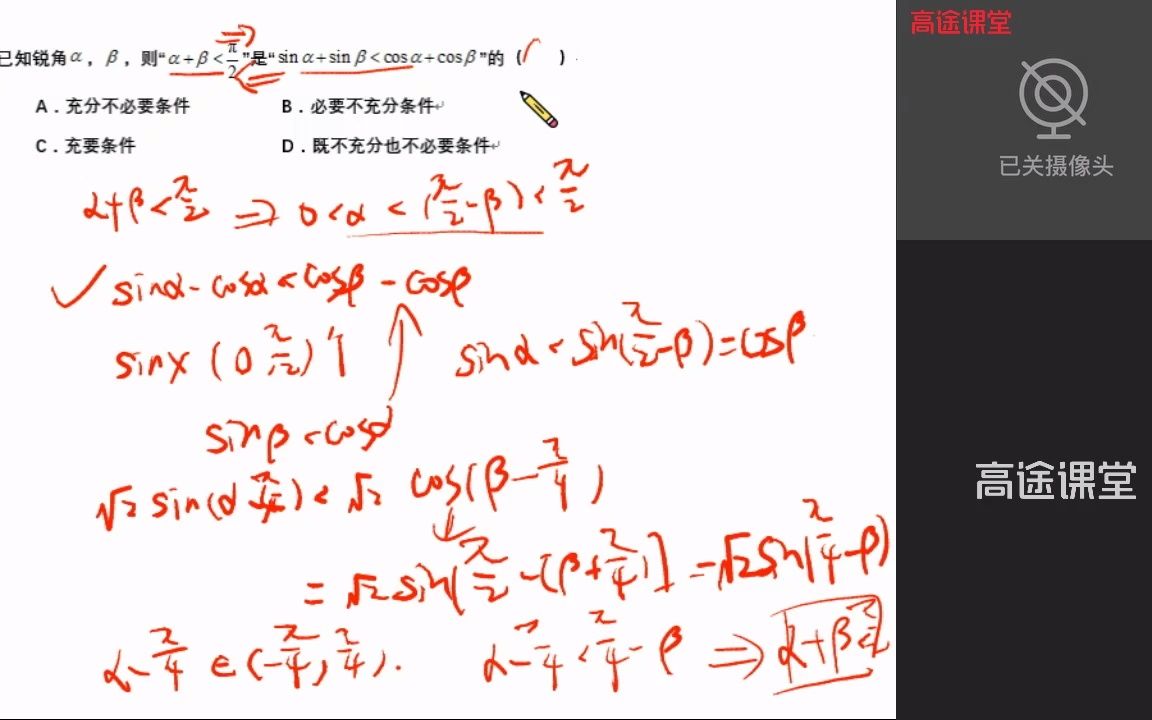 已知锐角α，β，则“α+β<π/2”是“sin α+sin β<cos α+cos β”的（ ）
A．充分不必要条件 B．必要不充分条件
C．充要条件 D．既不充分也不必要条件
α+β<π/2 ⇒ 0<α<(π/2-β)<π/2
✓ sinα-cosα<cosβ-cosβ
sinx (0 π/2)↑ sinα<sin(π/2-β)=cosβ
sinβ<cosα
√2 sin(α-π/4)<√2 cos(β-π/4)
=√2 sin[π/2-(β+π/4)]=√2 sin(π/4-β)
α-π/4∈(-π/4,π/4). α-π/4<π/4-β ⇒ α+β<π/2
高途课堂
已关摄像头
高途课堂